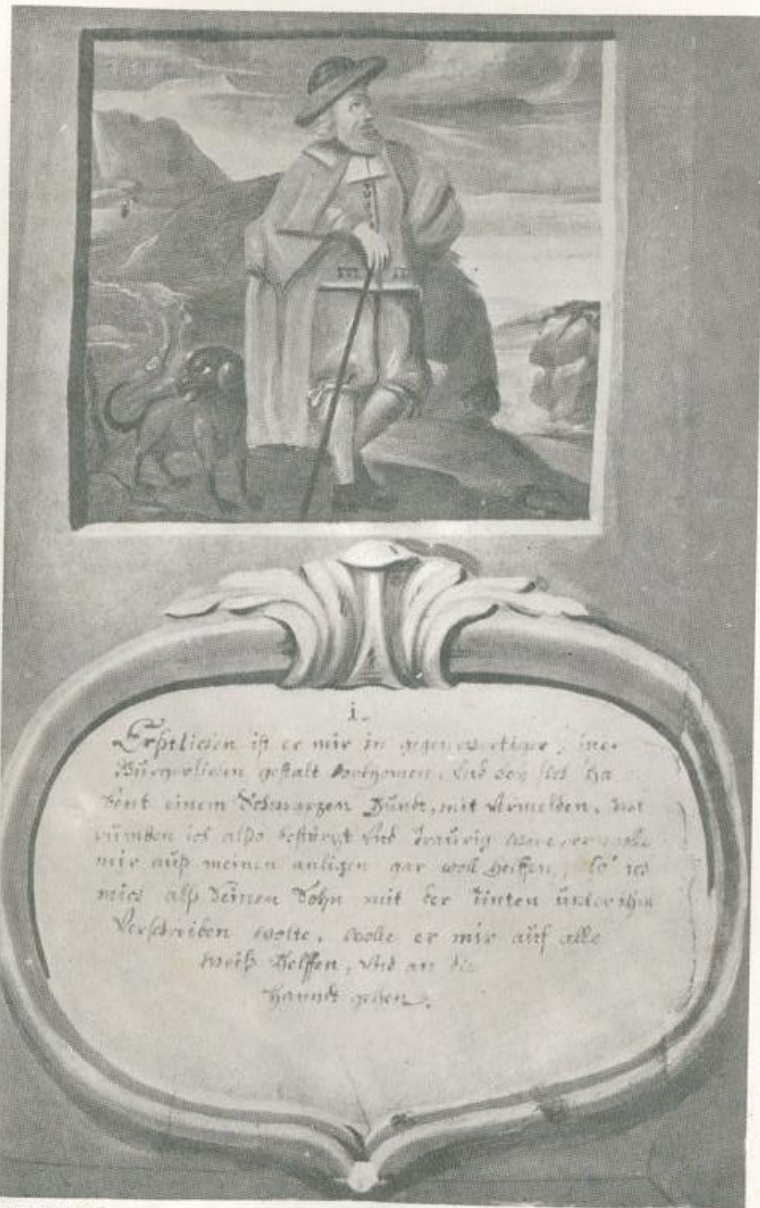 1.
Erstlichen ist er mir in gegenwertiger, iner
Bürgerlichen gestalt vorkhomen, und bey sich ha
bent einem Schwarzen Hundt, mit Vermelden, wa
rumben ich alßo bestürzt und Traurig were, er wolle
mir auß meinen anligen gar woll helffen, so ich
mich alß seinen Sohn mit der Dinten under ihm
Verschreiben wolte, wolle er mir auf alle
weiß helffen, und an die
Handt gehen.